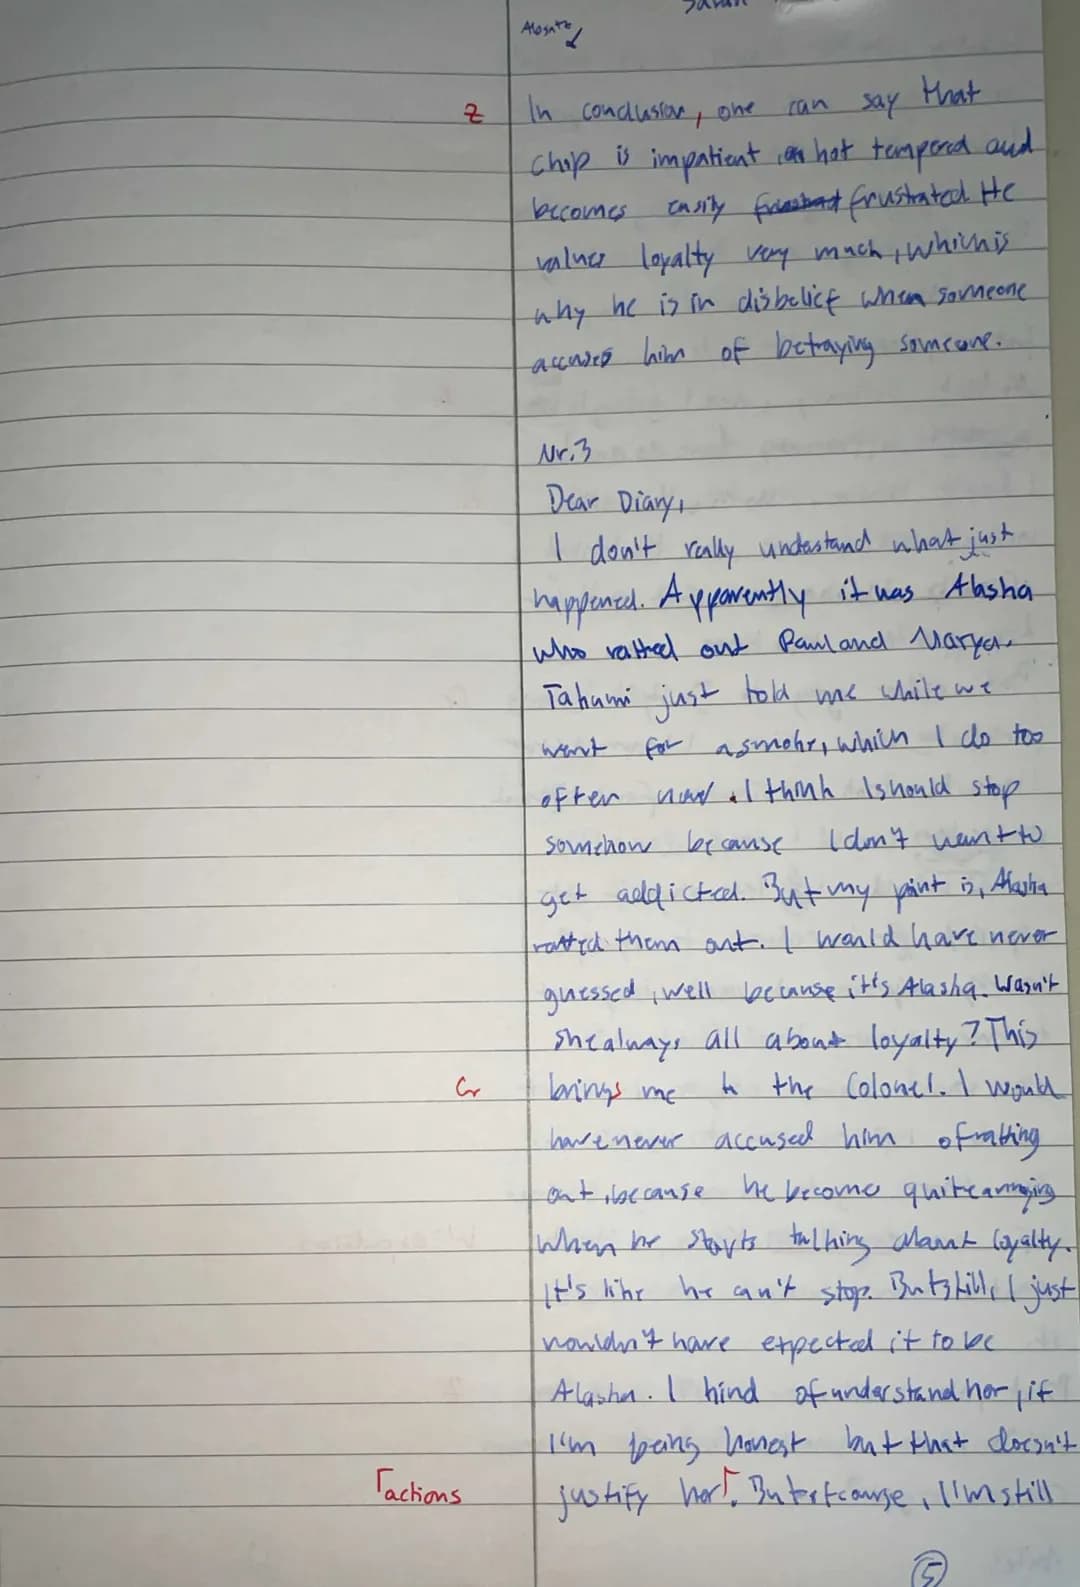 Sarah
Absatz
Z In conclusion, one can say that
Chip is impatient, hot tempered and
becomes easily frustrated He
values loyalty very much, which is
why he is in disbelief when someone
accuses him of betraying someone.
Nr.3
Dear Diary,
I don't really undastand what just
happened. Apparently it was Alasha
who ratted out Paul and Marya.
Tahumi just told me while we
went for a smoke, which I do too
often now. I think I should stop
somehow because I don't want to
get addicted. But my point is, Alasha
ratted them out. I would have never
guessed, well because it's Alasha. Wasn't
she always all about loyalty? This
Gr brings me to the Colonel. I would
have never accused him of ratting
out, because he become quite annoying
when he starts talking about loyalty.
It's like he can't stop. But still, I just
wouldn't have expected it to be
Alasha. I kind of understand her, if
I'm being honest but that doesn't
Γactions justify herΓ. But of course, I'm still
5